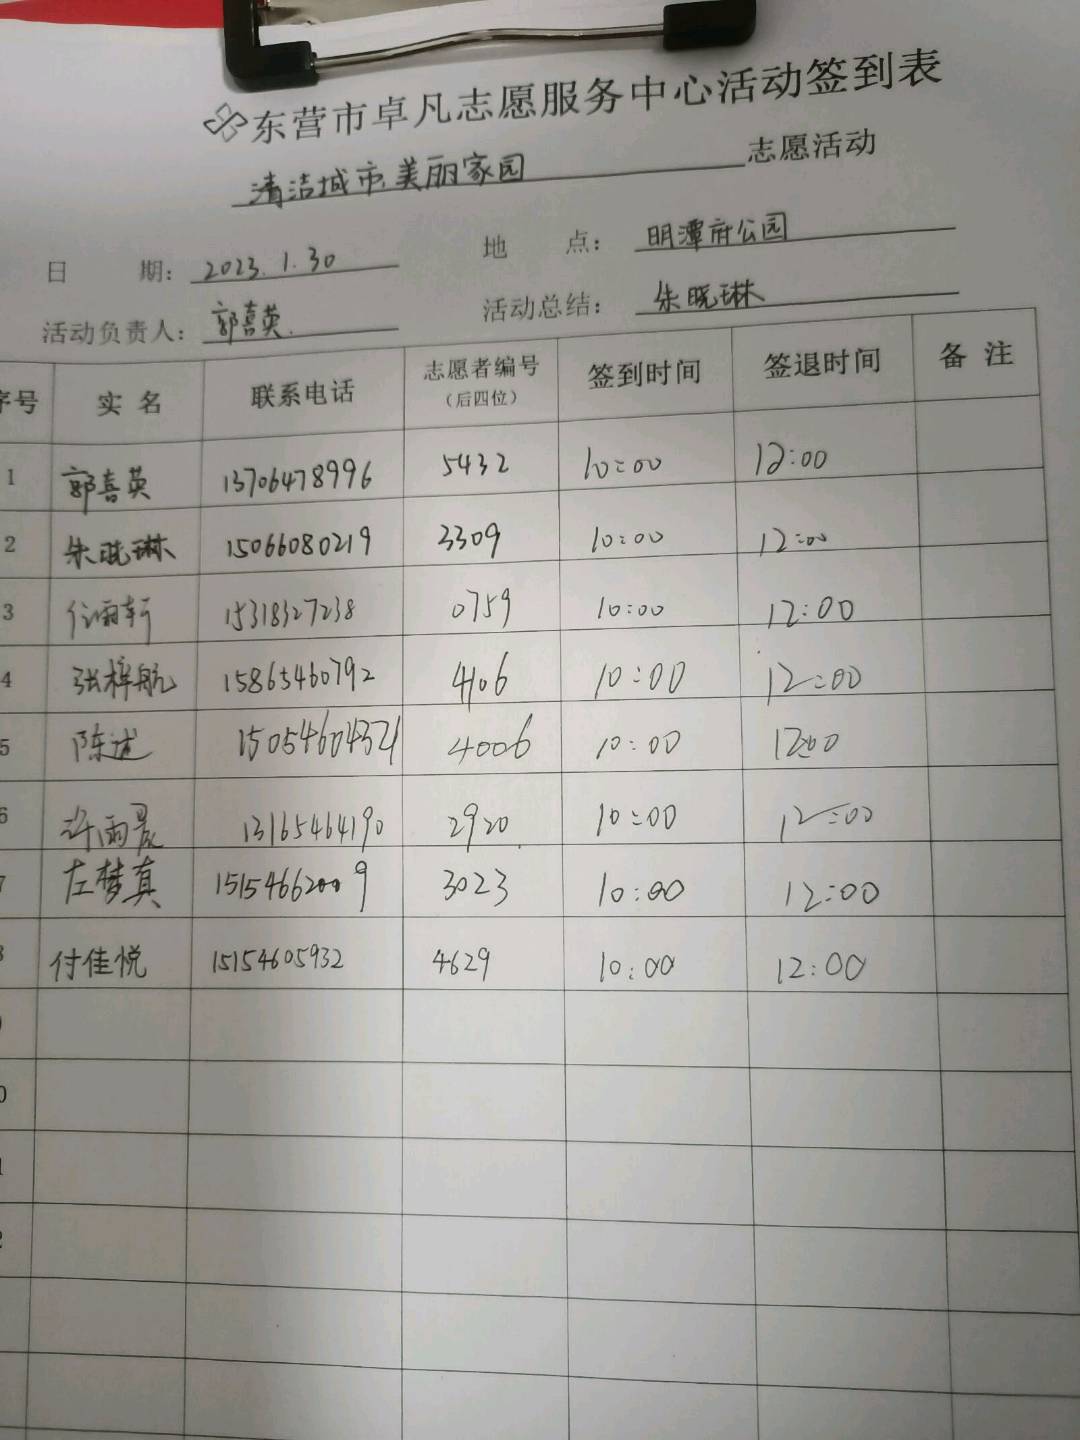 东营市卓凡志愿服务中心活动签到表
清洁城市,美丽家园 志愿活动
日 期: 2023.1.30 地 点: 明潭府公园
活动负责人: 郭喜英. 活动总结: 朱晓琳
序号 实名 联系电话 志愿者编号 (后四位) 签到时间 签退时间 备注
1 郭喜英 13706478996 5432 10:00 12:00
2 朱晓琳 15066080219 3309 10:00 12:00
3 任雨轩 15318327238 0759 10:00 12:00
4 张梓航 15865460792 4106 10:00 12:00
5 陈述 15054604321 4006 10:00 12:00
6 许雨晨 13165464190 2920 10:00 12:00
7 左梦真 15154662009 3023 10:00 12:00
8 付佳悦 15154605932 4629 10:00 12:00